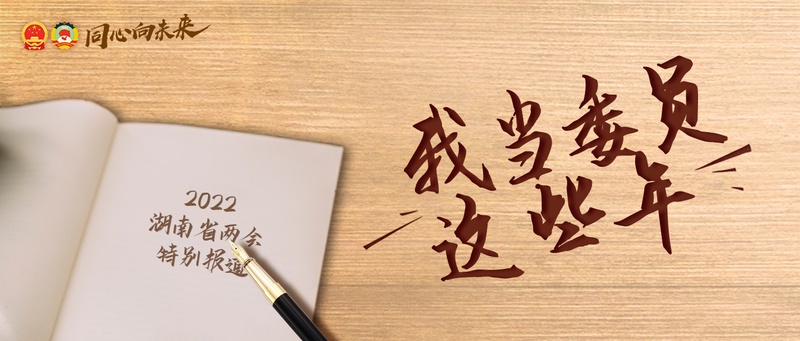 同心向未来
我当委员
这些年
2022
湖南省两会
特别报道